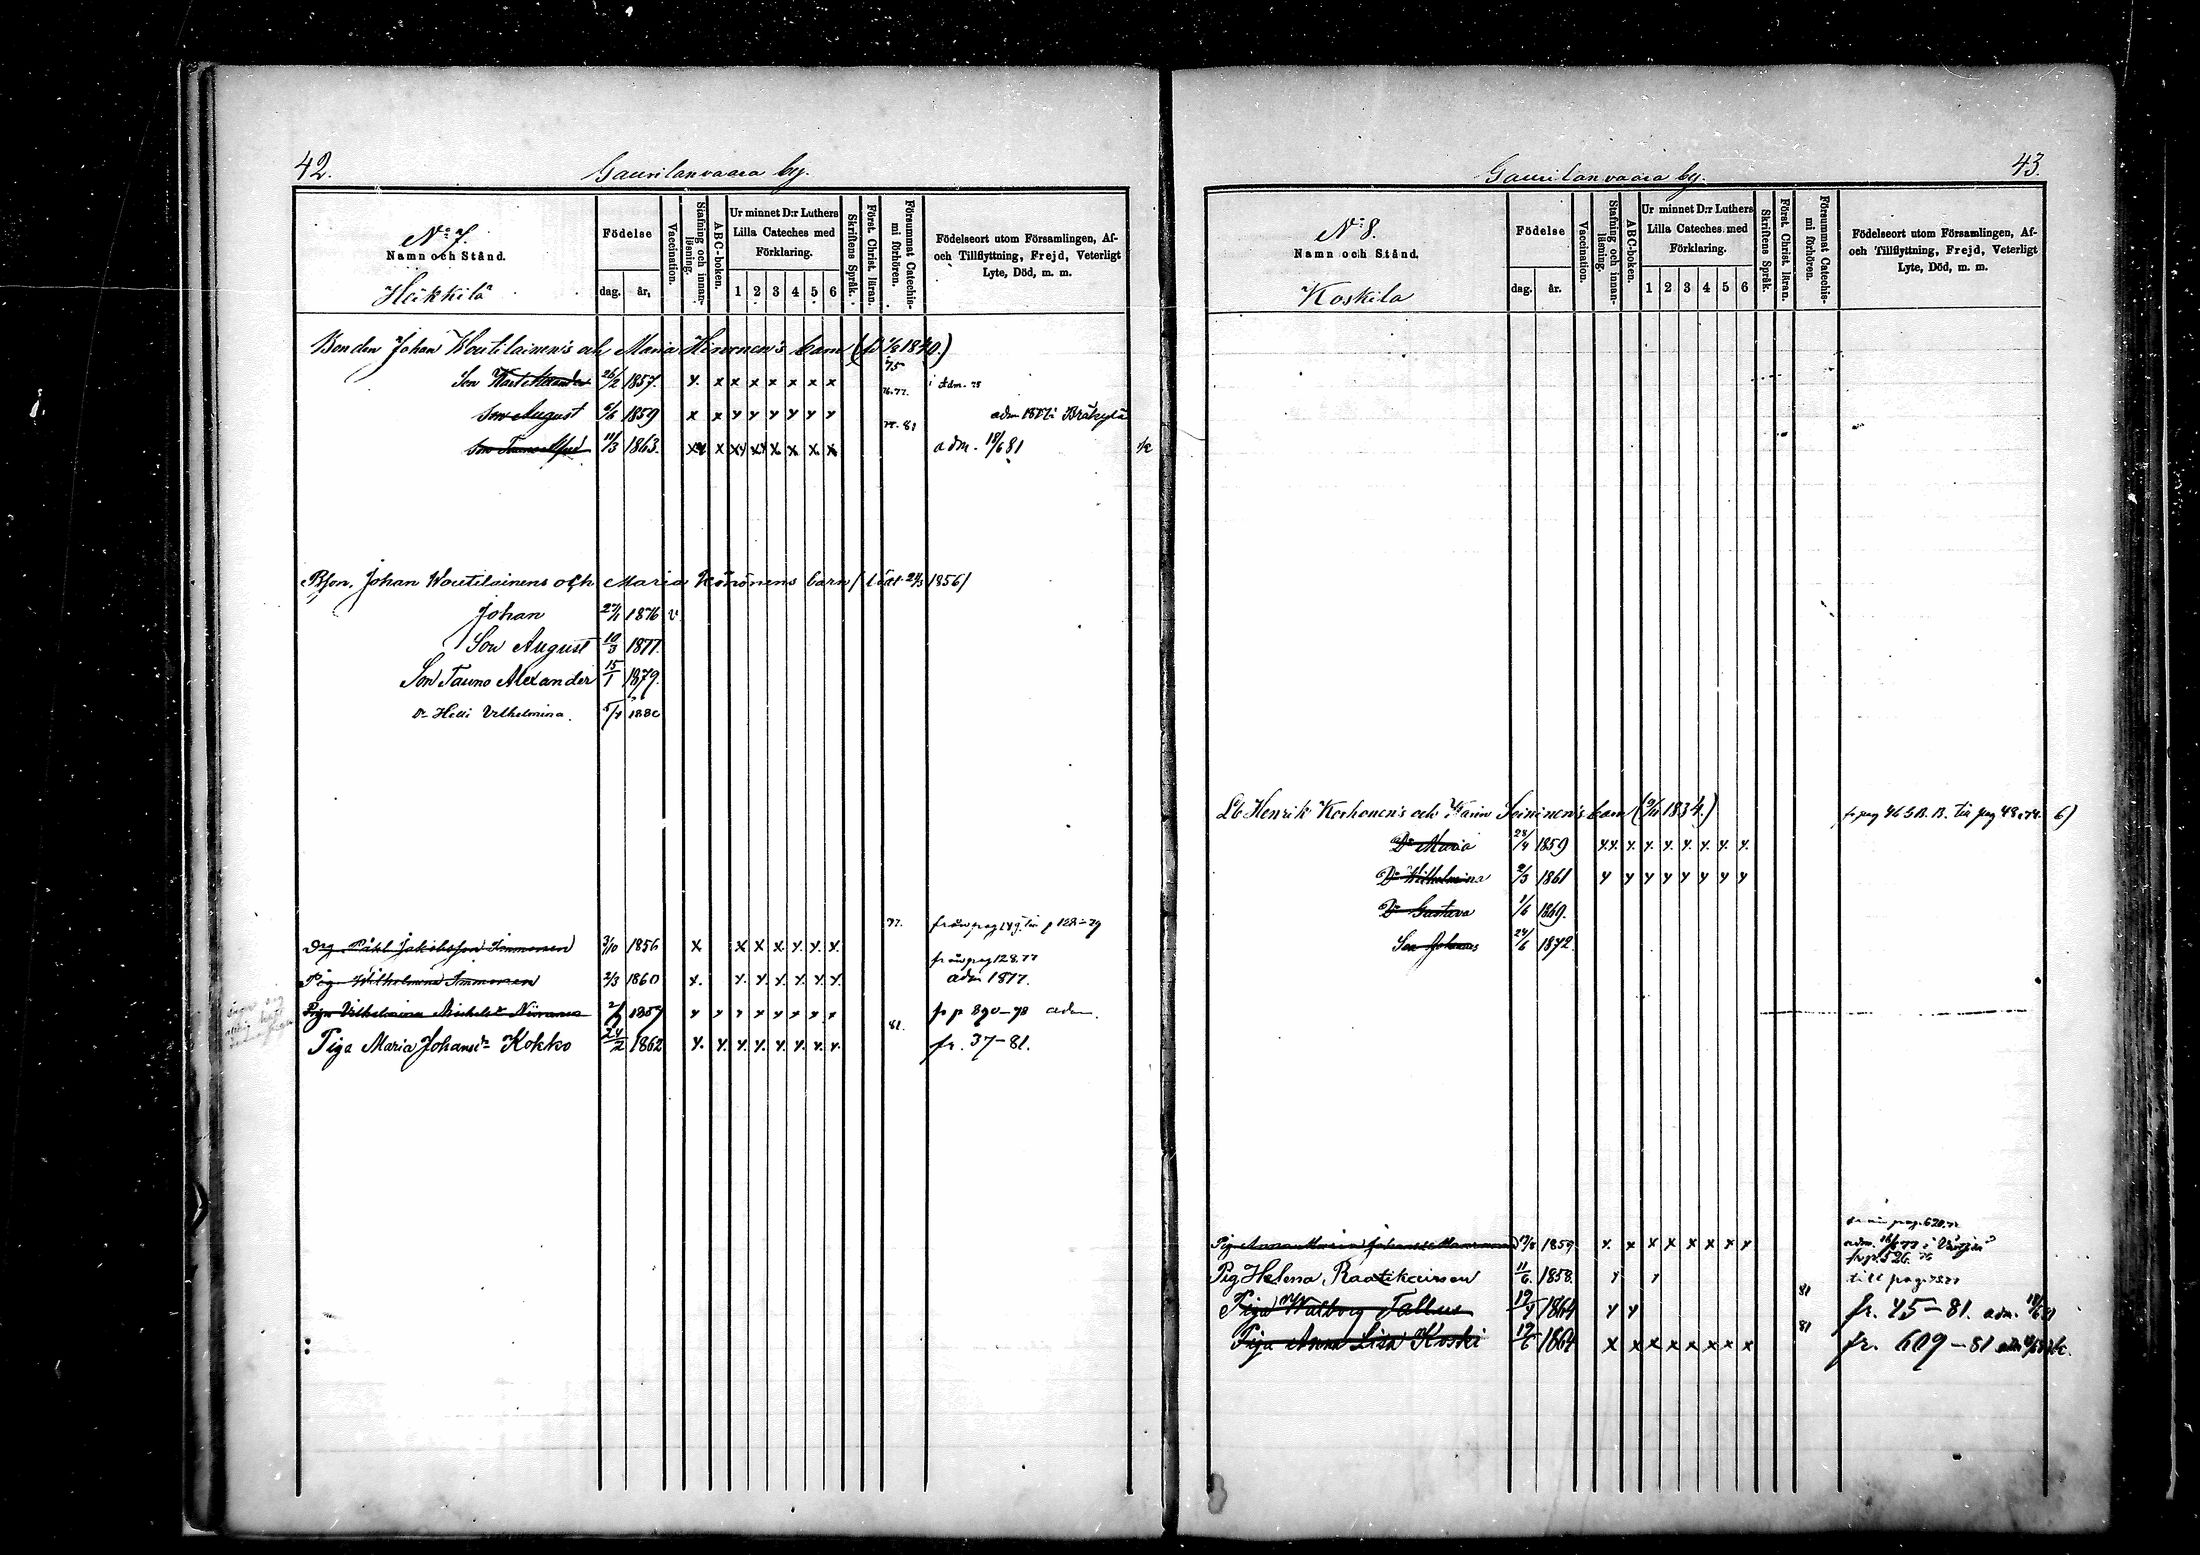 42.
Gaurilanvaara by.
No 7.
Namn och Stånd.
Heikkilä
Födelse
dag. år,
Vaccination.
Stafning och innan-
läsning.
ABC-boken.
Ur minnet D:r Luthers
Lilla Cateches med
Förklaring.
1 2 3 4 5 6
Skriftens Språk.
Först. Christ. läran.
Försummat Catechis-
mi förhören.
Födelseort utom Församlingen, Af-
och Tillflyttning, Frejd, Veterligt
Lyte, Död, m. m.
Bonden Johan Woutilainen's och Maria Hinonen's barn 1840.)
75
Son 26/2 1857. x x x x x x x x 76.77. i adm. 78
Son August 6/6 1859 x x x x x x x x adm 1877 i
81
Son 11/3 1863. x x x x x x x adm. 18/6 81
Bson. Johan Woutilainens och Maria barn 1856)
Johan 27/1 1876 v
Son August 10/3 1877.
Son Tauno Alexander 15/1 1879.
Dr Hilli Vilhelmina. 5/4 1880
77. från pag 149. till p 128-79
Drg. Påhl Jakobsson Immonen 3/10 1856 x x x x x x x
från pag 128.77
Piga Wilhelmina Immonen 2/3 1860 x. x. x. x. x. x. x. adm 1877.
Piga Vilhelmina Michelsdr Niiranen 1859 x x x x x x x x fr p 890-78 adm.
81.
Piga Maria Johansdr Kokko 24/2 1862 x. x. x. x. x. x. x. x. fr. 37-81.
43.
Gaurilanvaara by.
No 8.
Namn och Stånd.
Koskila
Födelse
dag. år.
Vaccination.
Stafning och innan-
läsning.
ABC-boken.
Ur minnet D:r Luthers
Lilla Cateches med
Förklaring.
1 2 3 4 5 6
Skriftens Språk.
Först. Christ. läran.
Försummat Catechis-
mi förhören.
Födelseort utom Församlingen, Af-
och Tillflyttning, Frejd, Veterligt
Lyte, Död, m. m.
Lb Henrik Korhonen's och Karin Soininen's barn 1834.) fr pag 46 S.B.B. till pag 48
Dr Maria 28/4 1859 x.x. x. x. x. x. x. x. x.
Dr Wilhelmina 2/3 1861 x x x x x x x x
Dr Gustava 1/6 1869.
Son Johannes 24/6 1872.
från pag. 620.
Pig. Anna Maria Johansdr 1859 x. x x x x x x x adm.
fr p. 526. 76
Pig Helena Raatikainen 11/6. 1858. till pag.
81
Piga Walborg Tallus 1864 x x fr. 45-81. adm.
81
Piga Anna Lisa Koski 1864 x x x x x x x x fr. 609-81